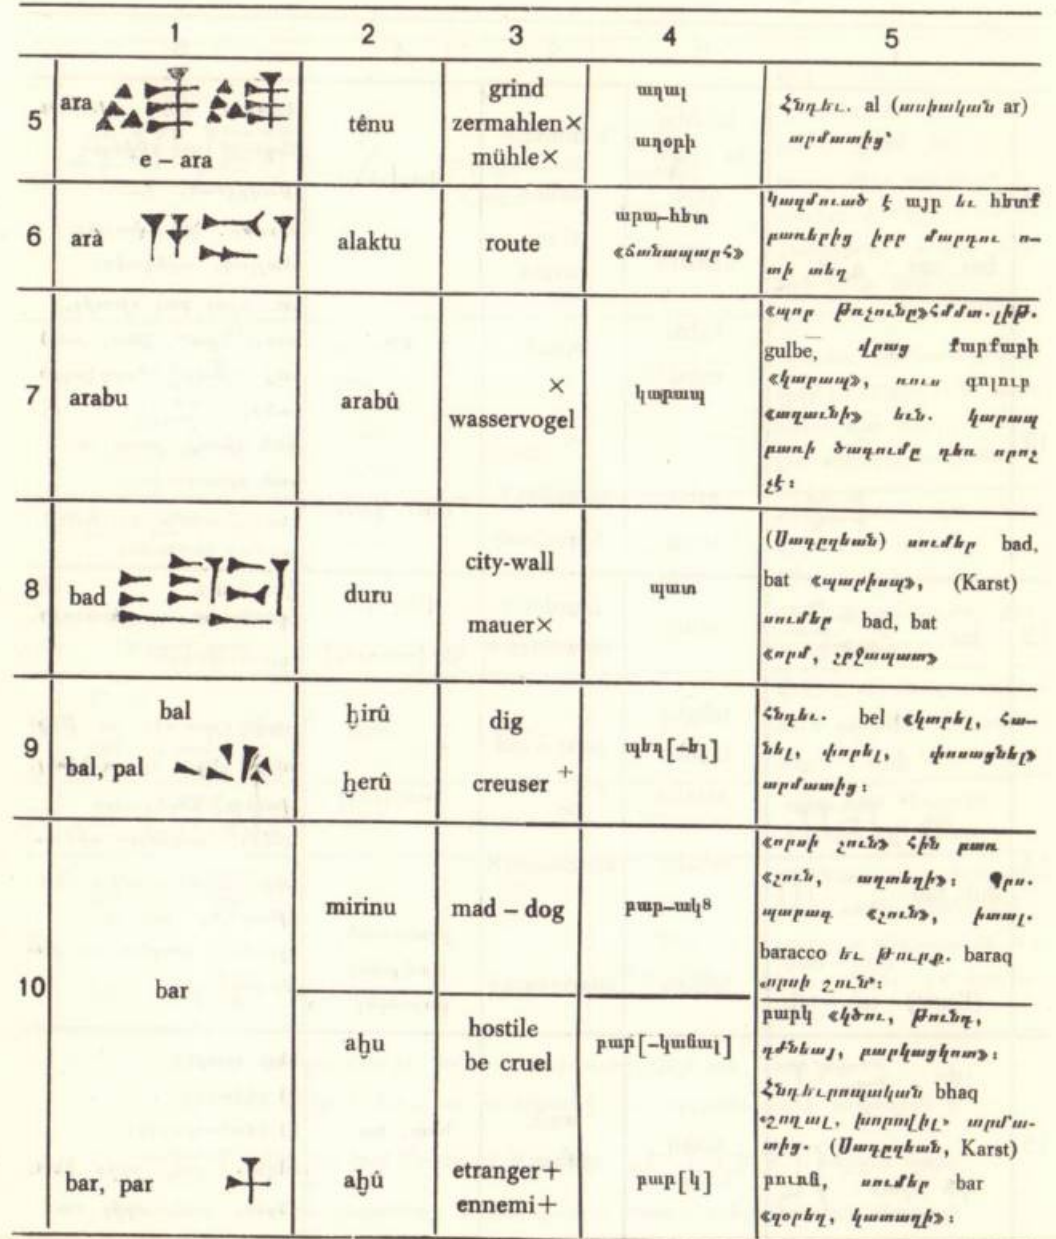 1 2 3 4 5
5
ara
e – ara
tênu
grind
zermahlen×
mühle×
աղալ
աղօրի
Հնդեւ. al (ասիական ar)
արմատից՝
6
arà
alaktu
route
արա–հետ
«ճանապարհ»
կազմուած է այր եւ հետք
բառերից իբր մարդու ո-
տի տեղ
7
arabu
arabû
×
wasservogel
կարապ
«պոր թռչունը»հմմտ. լիթ.
gulbe, վրաց քարքարի
«կարապ», ռուս գոլուբ
«աղաւնի» եւն. կարապ
բառի ծագումը դեռ որոշ
չէ:
8
bad
duru
city-wall
mauer×
պատ
(Սադըղեան) սումեր bad,
bat «պարիսպ», (Karst)
սումեր bad, bat
«որմ, շրջապատ»
9
bal
bal, pal
ḫirû
ḫerû
dig
creuser +
պեղ[–ել]
Հնդեւ. bel «կտրել, հա-
նել, փորել, փոսացնել»
արմատից:
10
bar
mirinu
mad – dog
բար–ակ⁸
«որսի շուն» հին բառ
«շուն, աղտեղի»: Պրս.
պարազ «շուն», իտալ.
baracco եւ թուրք. baraq
«որսի շուն»:
aḫu
hostile
be cruel
բար[–կանալ]
բարկ «կծու, թունդ,
դժնեայ, բարկացկոտ»:
Հնդեւրոպական bhaq
«շողալ, խորովիլ» արմա-
տից. (Սադըղեան, Karst)
բուռն, սումեր bar
«զօրեղ, կատաղի»:
bar, par
aḫû
etranger+
ennemi+
բար[կ]